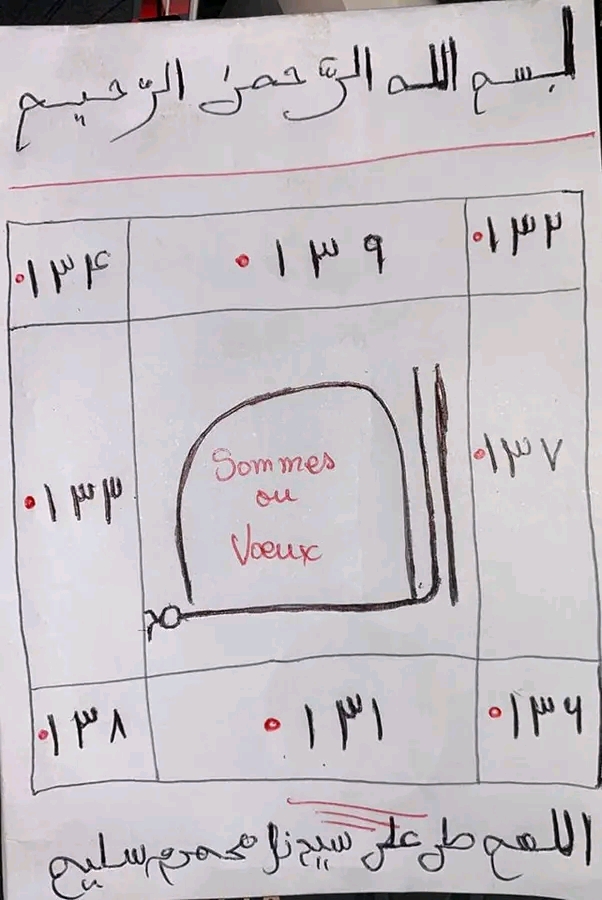 بسم الله الرّحمن الرّحيم
١٣٢ ١٣٩ ١٣٤
١٣٧
Sommes
ou
Voeux
١٣٣
١٣٦ ١٣١ ١٣٨
اللهم صل على سيدنا محمد